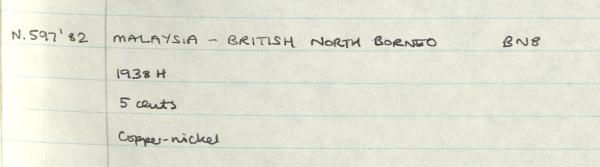 N.597'82 MALAYSIA - BRITISH NORTH BORNEO BN8
1938 H
5 cents
Copper-nickel